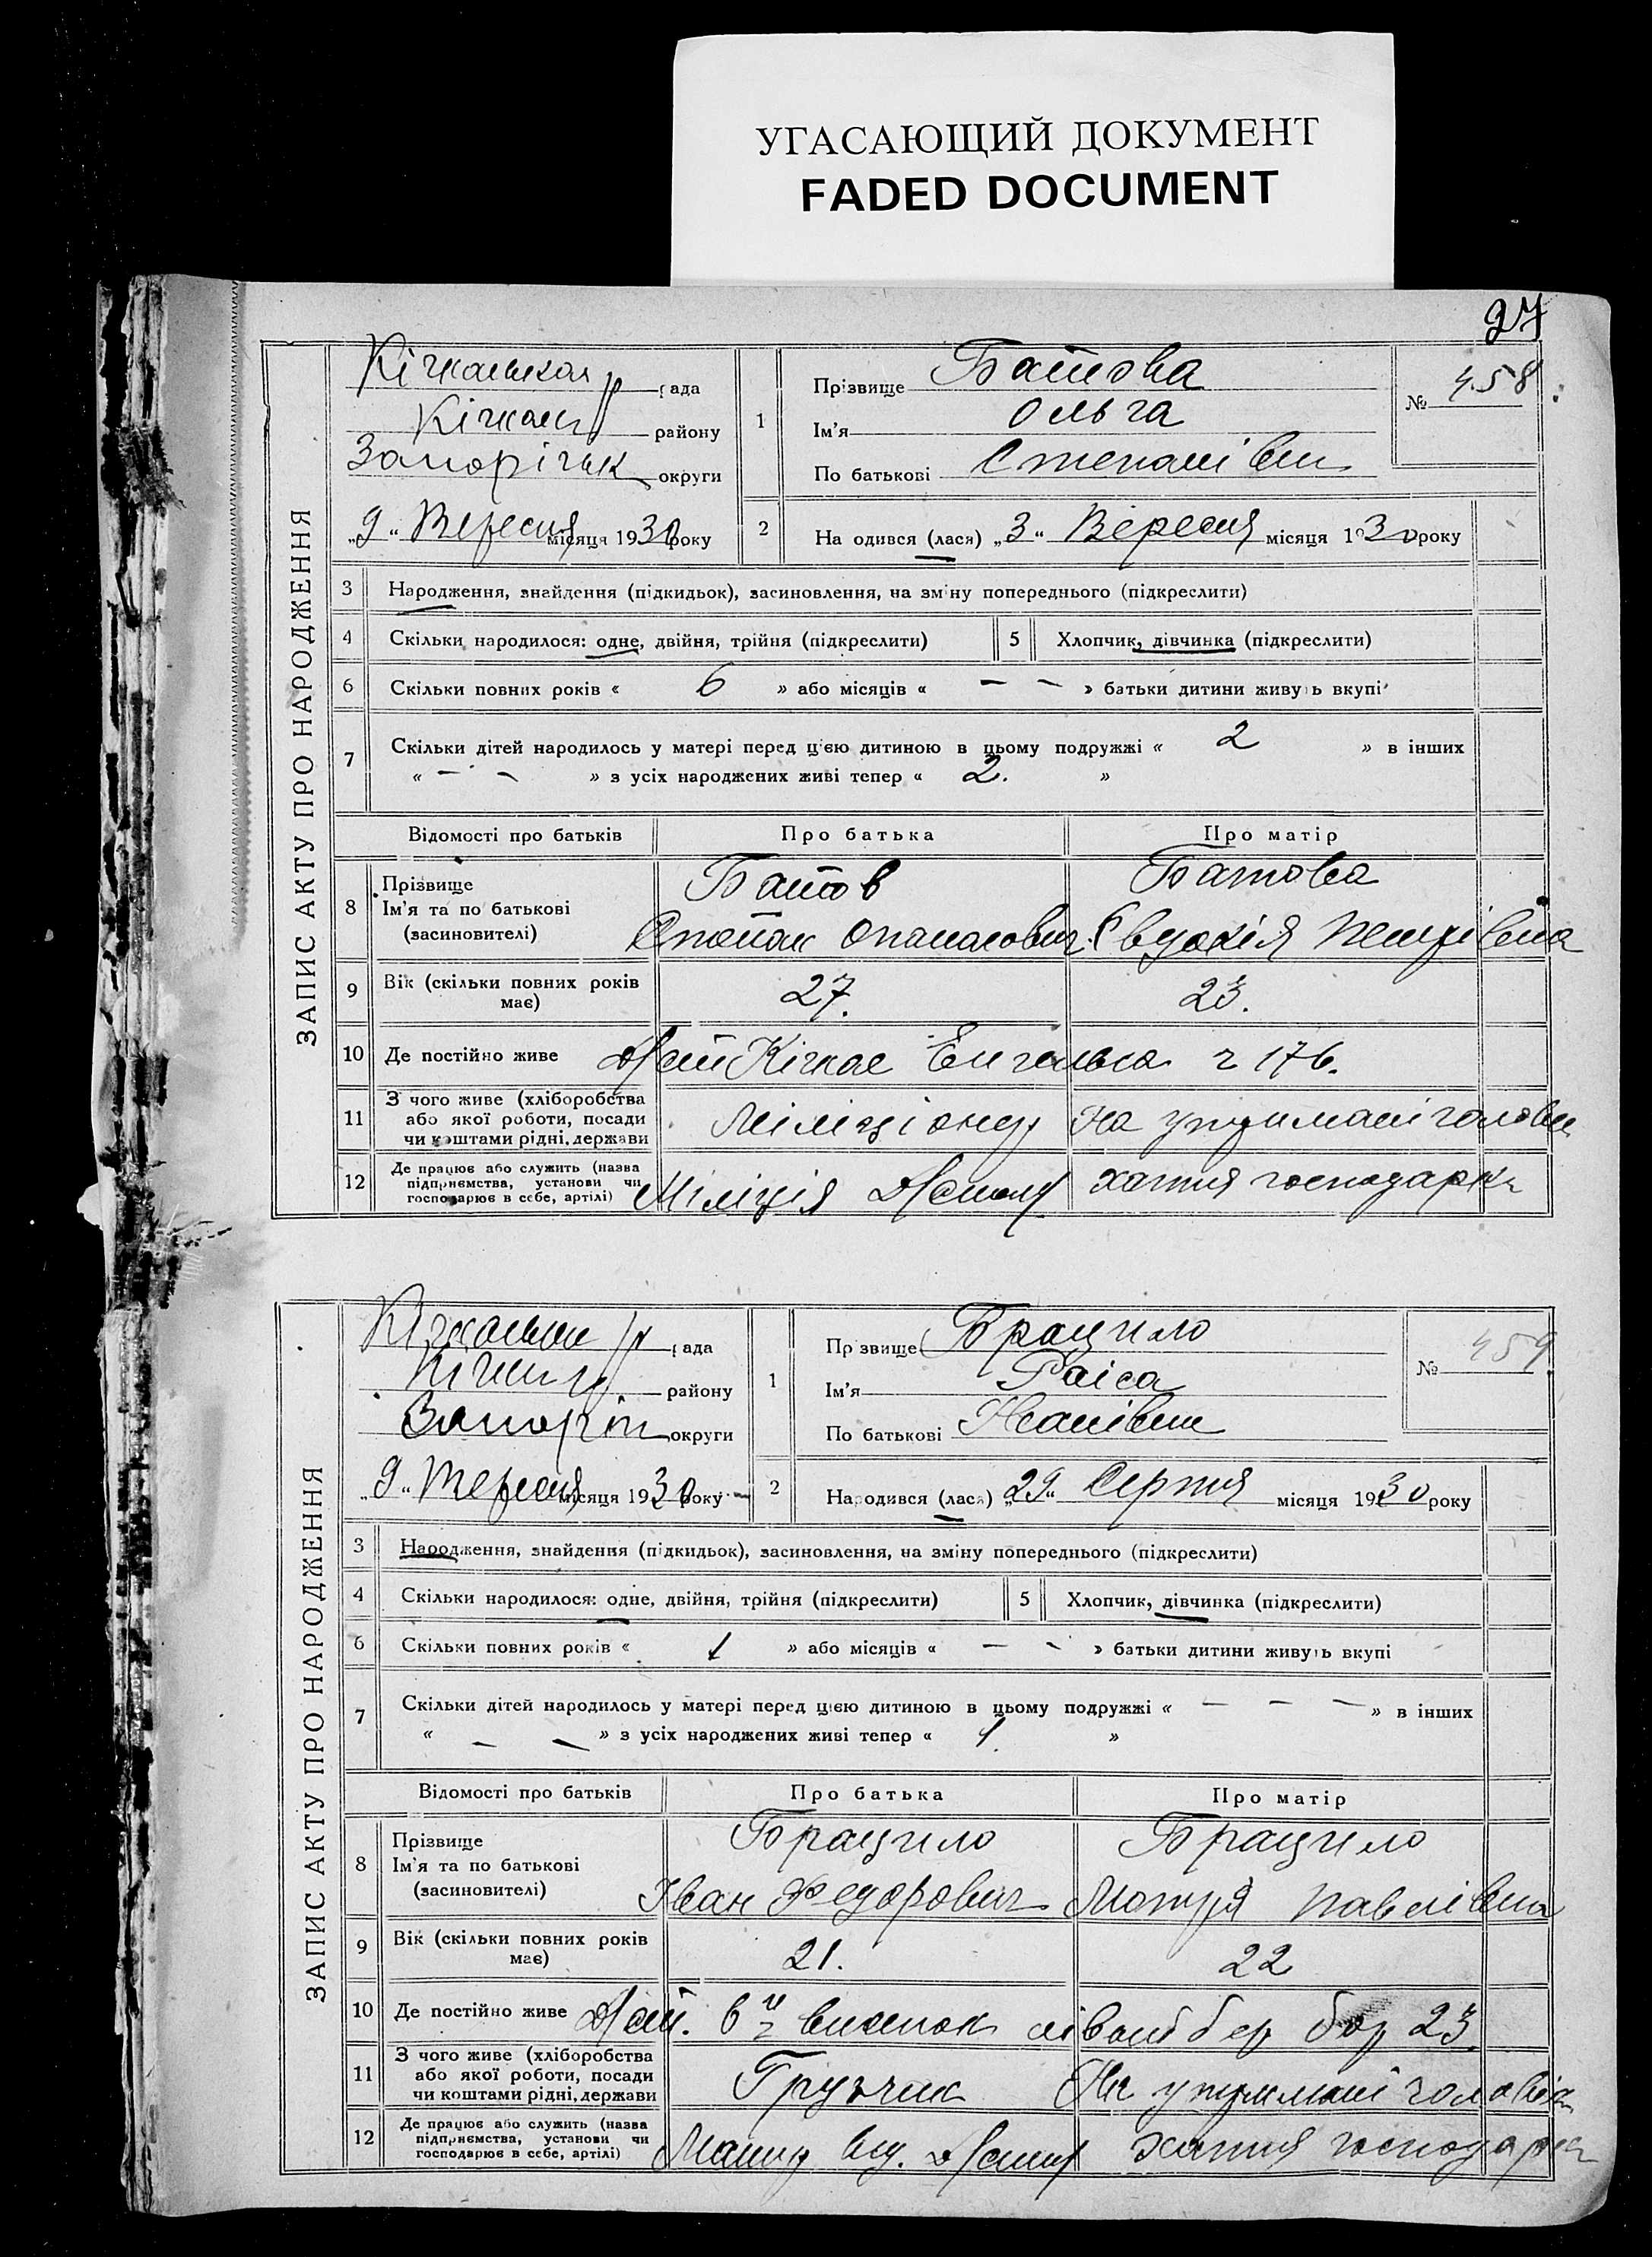 УГАСАЮЩИЙ ДОКУМЕНТ
FADED DOCUMENT
27
ЗАПИС АКТУ ПРО НАРОДЖЕННЯ
рада
району
Запоріжк округи
„9“ Вересня місяця 1930 року
1
Прізвище Батова
Ім'я Ольга
По батькові Степанівна
№ 458
2 На одився (лася) „3“ Вересня місяця 1930 року
3 Народження, знайдення (підкидьок), засиновлення, на зміну попереднього (підкреслити)
4 Скільки народилося: одне, двійня, трійня (підкреслити) 5 Хлопчик, дівчинка (підкреслити)
6 Скільки повних років « 6 » або місяців « — — » батьки дитини живуть вкупі
7 Скільки дітей народилось у матері перед цією дитиною в цьому подружжі « 2 » в інших
« — — » з усіх народжених живі тепер « 2. »
Відомості про батьків Про батька Про матір
8 Прізвище Батов Батова
Ім'я та по батькові
(засновителі) Степан Опанасович Євдокія Петрівна
9 Вік (скільки повних років має) 27. 23.
10 Де постійно живе Кічкас 176.
11 З чого живе (хліборобства
або якої роботи, посади
чи коштами рідні, держави Міліціонер На утримані чоловік
12 Де працює або служить (назва
підприємства, установи чи
господарює в себе, артілі) Міліція хатня господарка
ЗАПИС АКТУ ПРО НАРОДЖЕННЯ
рада
району
Запоріж округи
„9“ Вересня місяця 1930 року
1
Пр звище Брацило
Ім'я Раіса
По батькові Іванівна
№ 459
2 Народився (лася) „29“ Серпня місяця 1930 року
3 Народження, знайдення (підкидьок), засиновлення, на зміну попереднього (підкреслити)
4 Скільки народилося: одне, двійня, трійня (підкреслити) 5 Хлопчик, дівчинка (підкреслити)
6 Скільки повних років « 1 » або місяців « — — » батьки дитини живуть вкупі
7 Скільки дітей народилось у матері перед цією дитиною в цьому подружжі « — — — » в інших
« — — » з усіх народжених живі тепер « 1. »
Відомості про батьків Про батька Про матір
8 Прізвище Брацило Брацило
Ім'я та по батькові
(засиновителі) Іван Федорович Мотря Павлівна
9 Вік (скільки повних років має) 21. 22
10 Де постійно живе 23.
11 З чого живе (хліборобства
або якої роботи, посади
чи коштами рідні, держави Грузчик На утримані чоловіка
12 Де працює або служить (назва
підприємства, установи чи
господарює в себе, артілі) хатня господарка